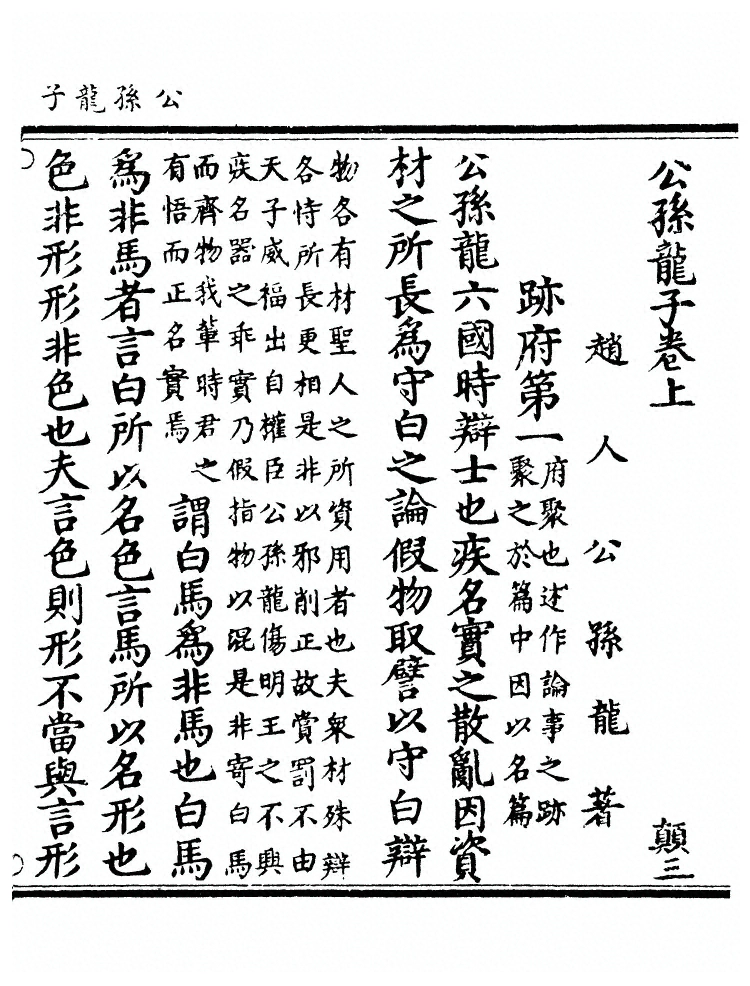 公孫龍子
公孫龍子卷上 顛三
趙人公孫龍著
跡府第一
府聚也述作論事之跡
聚之於篇中因以名篇
公孫龍六國時辯士也疾名實之散亂因資
材之所長爲守白之論假物取譬以守白辯
物各有材聖人之所資用者也夫衆材殊辯
各恃所長更相是非以邪削正故賞罰不由
天子威福出自權臣公孫龍傷明王之不興
疾名器之乖實乃假指物以混是非寄白馬
而齊物我冀時君之
有悟而正名實焉
謂白馬爲非馬也白馬
爲非馬者言白所以名色言馬所以名形也
色非形形非色也夫言色則形不當與言形